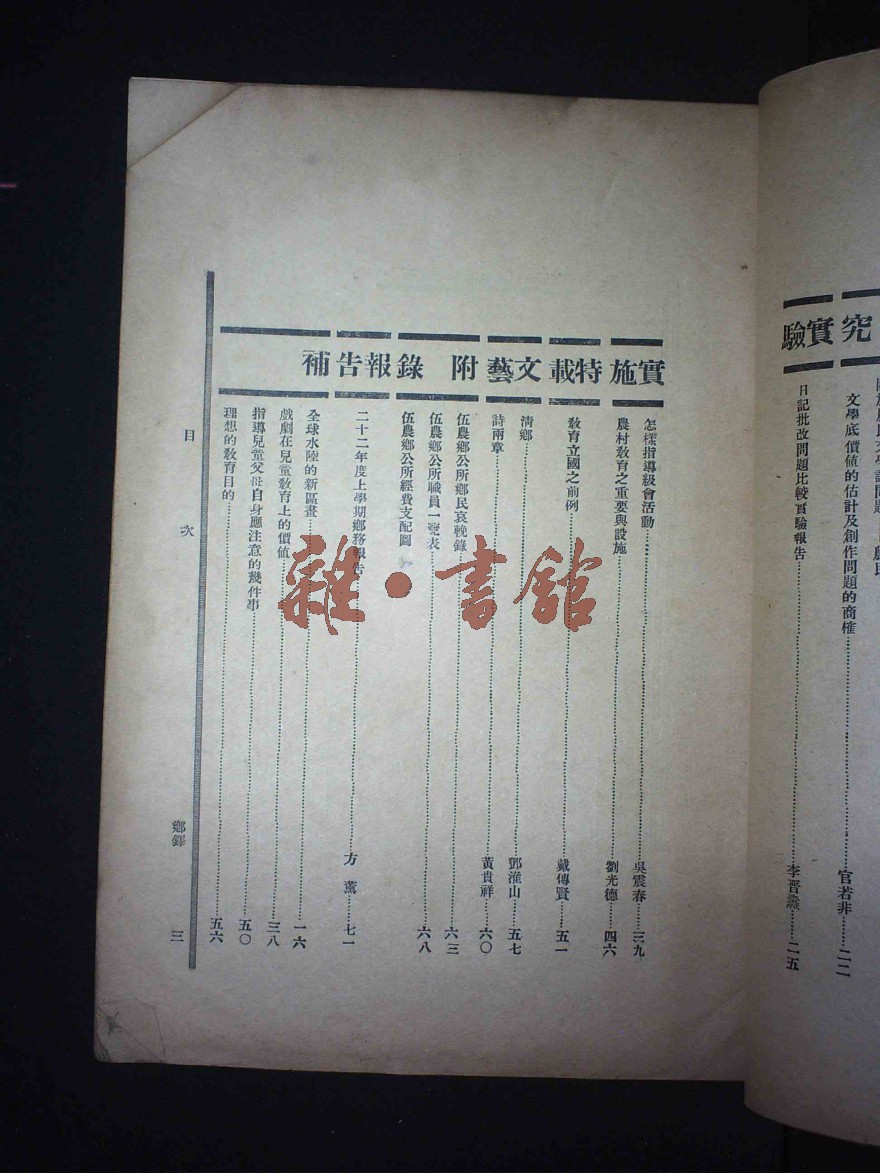 究
實驗
文學底價値的估計及創作問題的商榷……官若非……二二
日記批改問題比較實驗報告……李晋……二五
實施
特載
文藝
附錄
報告
補
怎樣指導級會活動……吳震春……三九
農村敎育之重要與設施……劉光德……四六
敎育立國之前例……戴傳賢……五一
淸鄉……鄧淮山……五七
詩兩章……黃貴祥……六〇
伍農鄉公所鄉民哀輓錄……六三
伍農鄉公所職員一覽表……六八
伍農鄉公所經費支配圖
二十二年度上學期鄉務報告……方薰……七一
全球水陸的新區畫……一六
戲劇在兒童敎育上的價値……三八
指導兒童父母自身應注意的幾件事……五〇
理想的敎育目的……五六
目次
鄉鐸
三
雜·書館